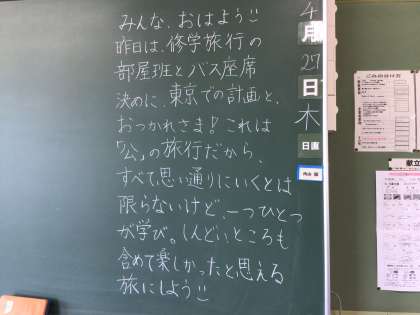 みんな、おはよう!!
昨日は、修学旅行の
部屋班とバス座席
決めに、東京での計画と、
おつかれさま!これは
「公」の旅行だから、
すべて思い通りにいくとは
限らないけど、一つひとつ
が学び。しんどいところも
含めて楽しかったと思える
旅にしよう!!
4
月
27
日
木
日直
ごみの分け方